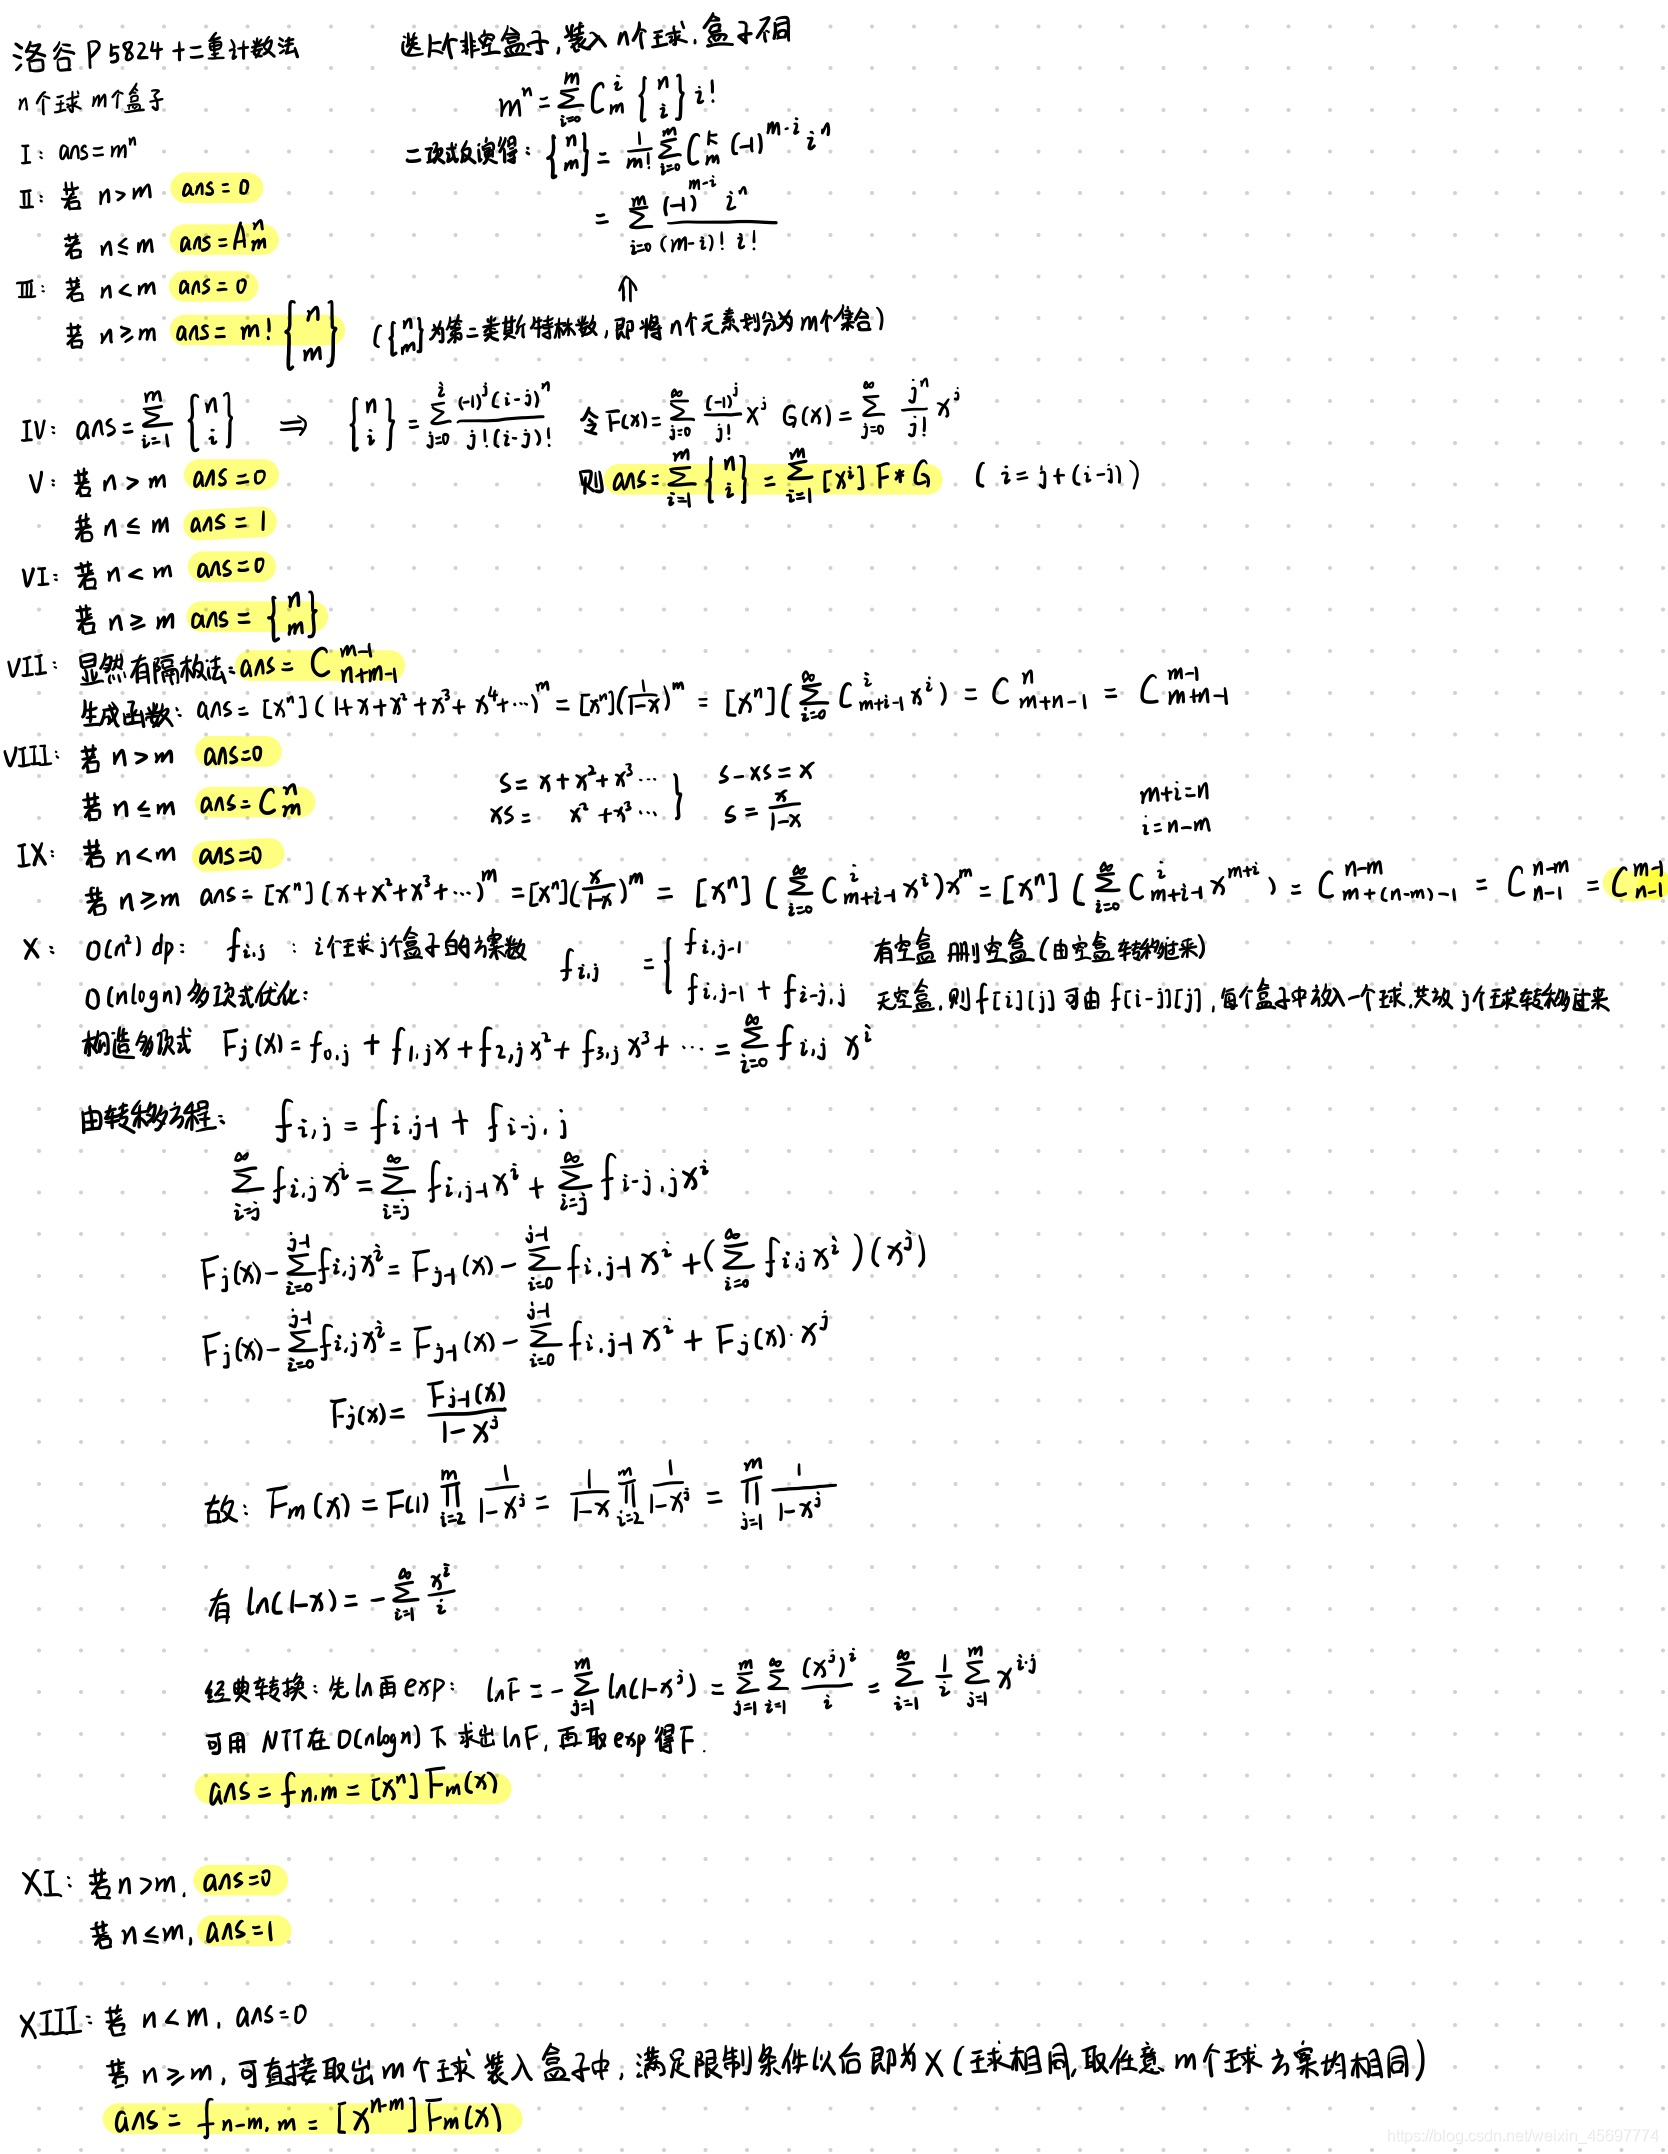 洛谷 P5824 十二重计数法
选k个非空盒子,装入 n个球.盒子不同
n个球 m个盒子
m^n = ∑_{i=0}^{m} C_m^i {n i} i!
I: ans=m^n
二项式反演得: {n m} = 1/m! ∑_{i=0}^{m} C_m^k (-1)^{m-i} i^n
= ∑_{i=0}^{m} (-1)^{m-i} i^n / (m-i)! i!
⇑
II: 若 n>m ans=0
若 n≤m ans=A_m^n
III: 若 n<m ans=0
若 n≥m ans= m! {n m} ({n m}为第二类斯特林数,即将n个元素划分为m个集合)
IV: ans=∑_{i=1}^{m} {n i} ⇒ {n i} = ∑_{j=0}^{i} (-1)^j (i-j)^n / j!(i-j)! 令 F(x)=∑_{j=0}^{∞} (-1)^j/j! x^j G(x)=∑_{j=0}^{∞} j^n/j! x^j
则 ans=∑_{i=1}^{m} {n i} = ∑_{i=1}^{m} [x^i] F*G ( i=j+(i-j) )
V: 若 n>m ans=0
若 n≤m ans=1
VI: 若 n<m ans=0
若 n≥m ans= {n m}
VII: 显然有隔板法: ans= C_{n+m-1}^{m-1}
生成函数: ans=[x^n](1+x+x^2+x^3+x^4+⋯)^m = [x^n](1/1-x)^m = [x^n](∑_{i=0}^{∞} C_{m+i-1}^i x^i) = C_{m+n-1}^n = C_{m+n-1}^{m-1}
VIII: 若 n>m ans=0
若 n≤m ans=C_m^n
S= x+x^2+x^3⋯
xS= x^2+x^3⋯
} S-xS=x
S= x/1-x
m+i=n
i=n-m
IX: 若 n<m ans=0
若 n≥m ans=[x^n](x+x^2+x^3+⋯)^m =[x^n](x/1-x)^m = [x^n](∑_{i=0}^{∞} C_{m+i-1}^i x^i)x^m = [x^n](∑_{i=0}^{∞} C_{m+i-1}^i x^{m+i}) = C_{m+(n-m)-1}^{n-m} = C_{n-1}^{n-m} = C_{n-1}^{m-1}
X: O(n²) dp: f_{i,j} : i个球j个盒子的方案数 f_{i,j} = {
f_{i,j-1} 有空盒 删空盒(由空盒转移过来)
f_{i,j-1} + f_{i-j,j} 无空盒,则f[i][j]可由 f[i-j][j],每个盒子中放入一个球,共放 j个球转移过来
O(nlogn)多项式优化:
构造多项式 F_j(x)=f_{0,j} + f_{1,j}x+f_{2,j}x^2+f_{3,j}x^3+ ⋯ = ∑_{i=0}^{∞} f_{i,j} x^i
由转移方程: f_{i,j} = f_{i,j-1} + f_{i-j,j}
∑_{i=j}^{∞} f_{i,j}x^i = ∑_{i=j}^{∞} f_{i,j-1}x^i + ∑_{i=j}^{∞} f_{i-j,j}x^i
F_j(x)-∑_{i=0}^{j-1} f_{i,j}x^i = F_{j-1}(x) - ∑_{i=0}^{j-1} f_{i,j-1}x^i +(∑_{i=0}^{∞} f_{i,j}x^i)(x^j)
F_j(x)-∑_{i=0}^{j-1} f_{i,j}x^i = F_{j-1}(x) - ∑_{i=0}^{j-1} f_{i,j-1}x^i + F_j(x)·x^j
F_j(x)= F_{j-1}(x) / 1-x^j
故: F_m(x) = F(1) ∏_{i=2}^{m} 1/1-x^j = 1/1-x ∏_{i=2}^{m} 1/1-x^j = ∏_{j=1}^{m} 1/1-x^j
有 ln(1-x) = -∑_{i=1}^{∞} x^i/i
经典转换: 先ln再exp: lnF = -∑_{j=1}^{m} ln(1-x^j) = ∑_{j=1}^{m} ∑_{i=1}^{∞} (x^j)^i/i = ∑_{i=1}^{∞} 1/i ∑_{j=1}^{m} x^{i·j}
可用 NTT在 O(nlogn) 下 求出lnF, 再取exp得F.
ans=f_{n,m} = [x^n] F_m(x)
XI: 若n>m, ans=0
若 n≤m, ans=1
XIII: 若 n<m, ans=0
若 n≥m, 可直接取出 m个球 装入盒子中, 满足限制条件以后即为X(球相同,取任意 m个球方案均相同)
ans= f_{n-m,m} = [x^{n-m}] F_m(x)
https://blog.csdn.net/weixin_45697774